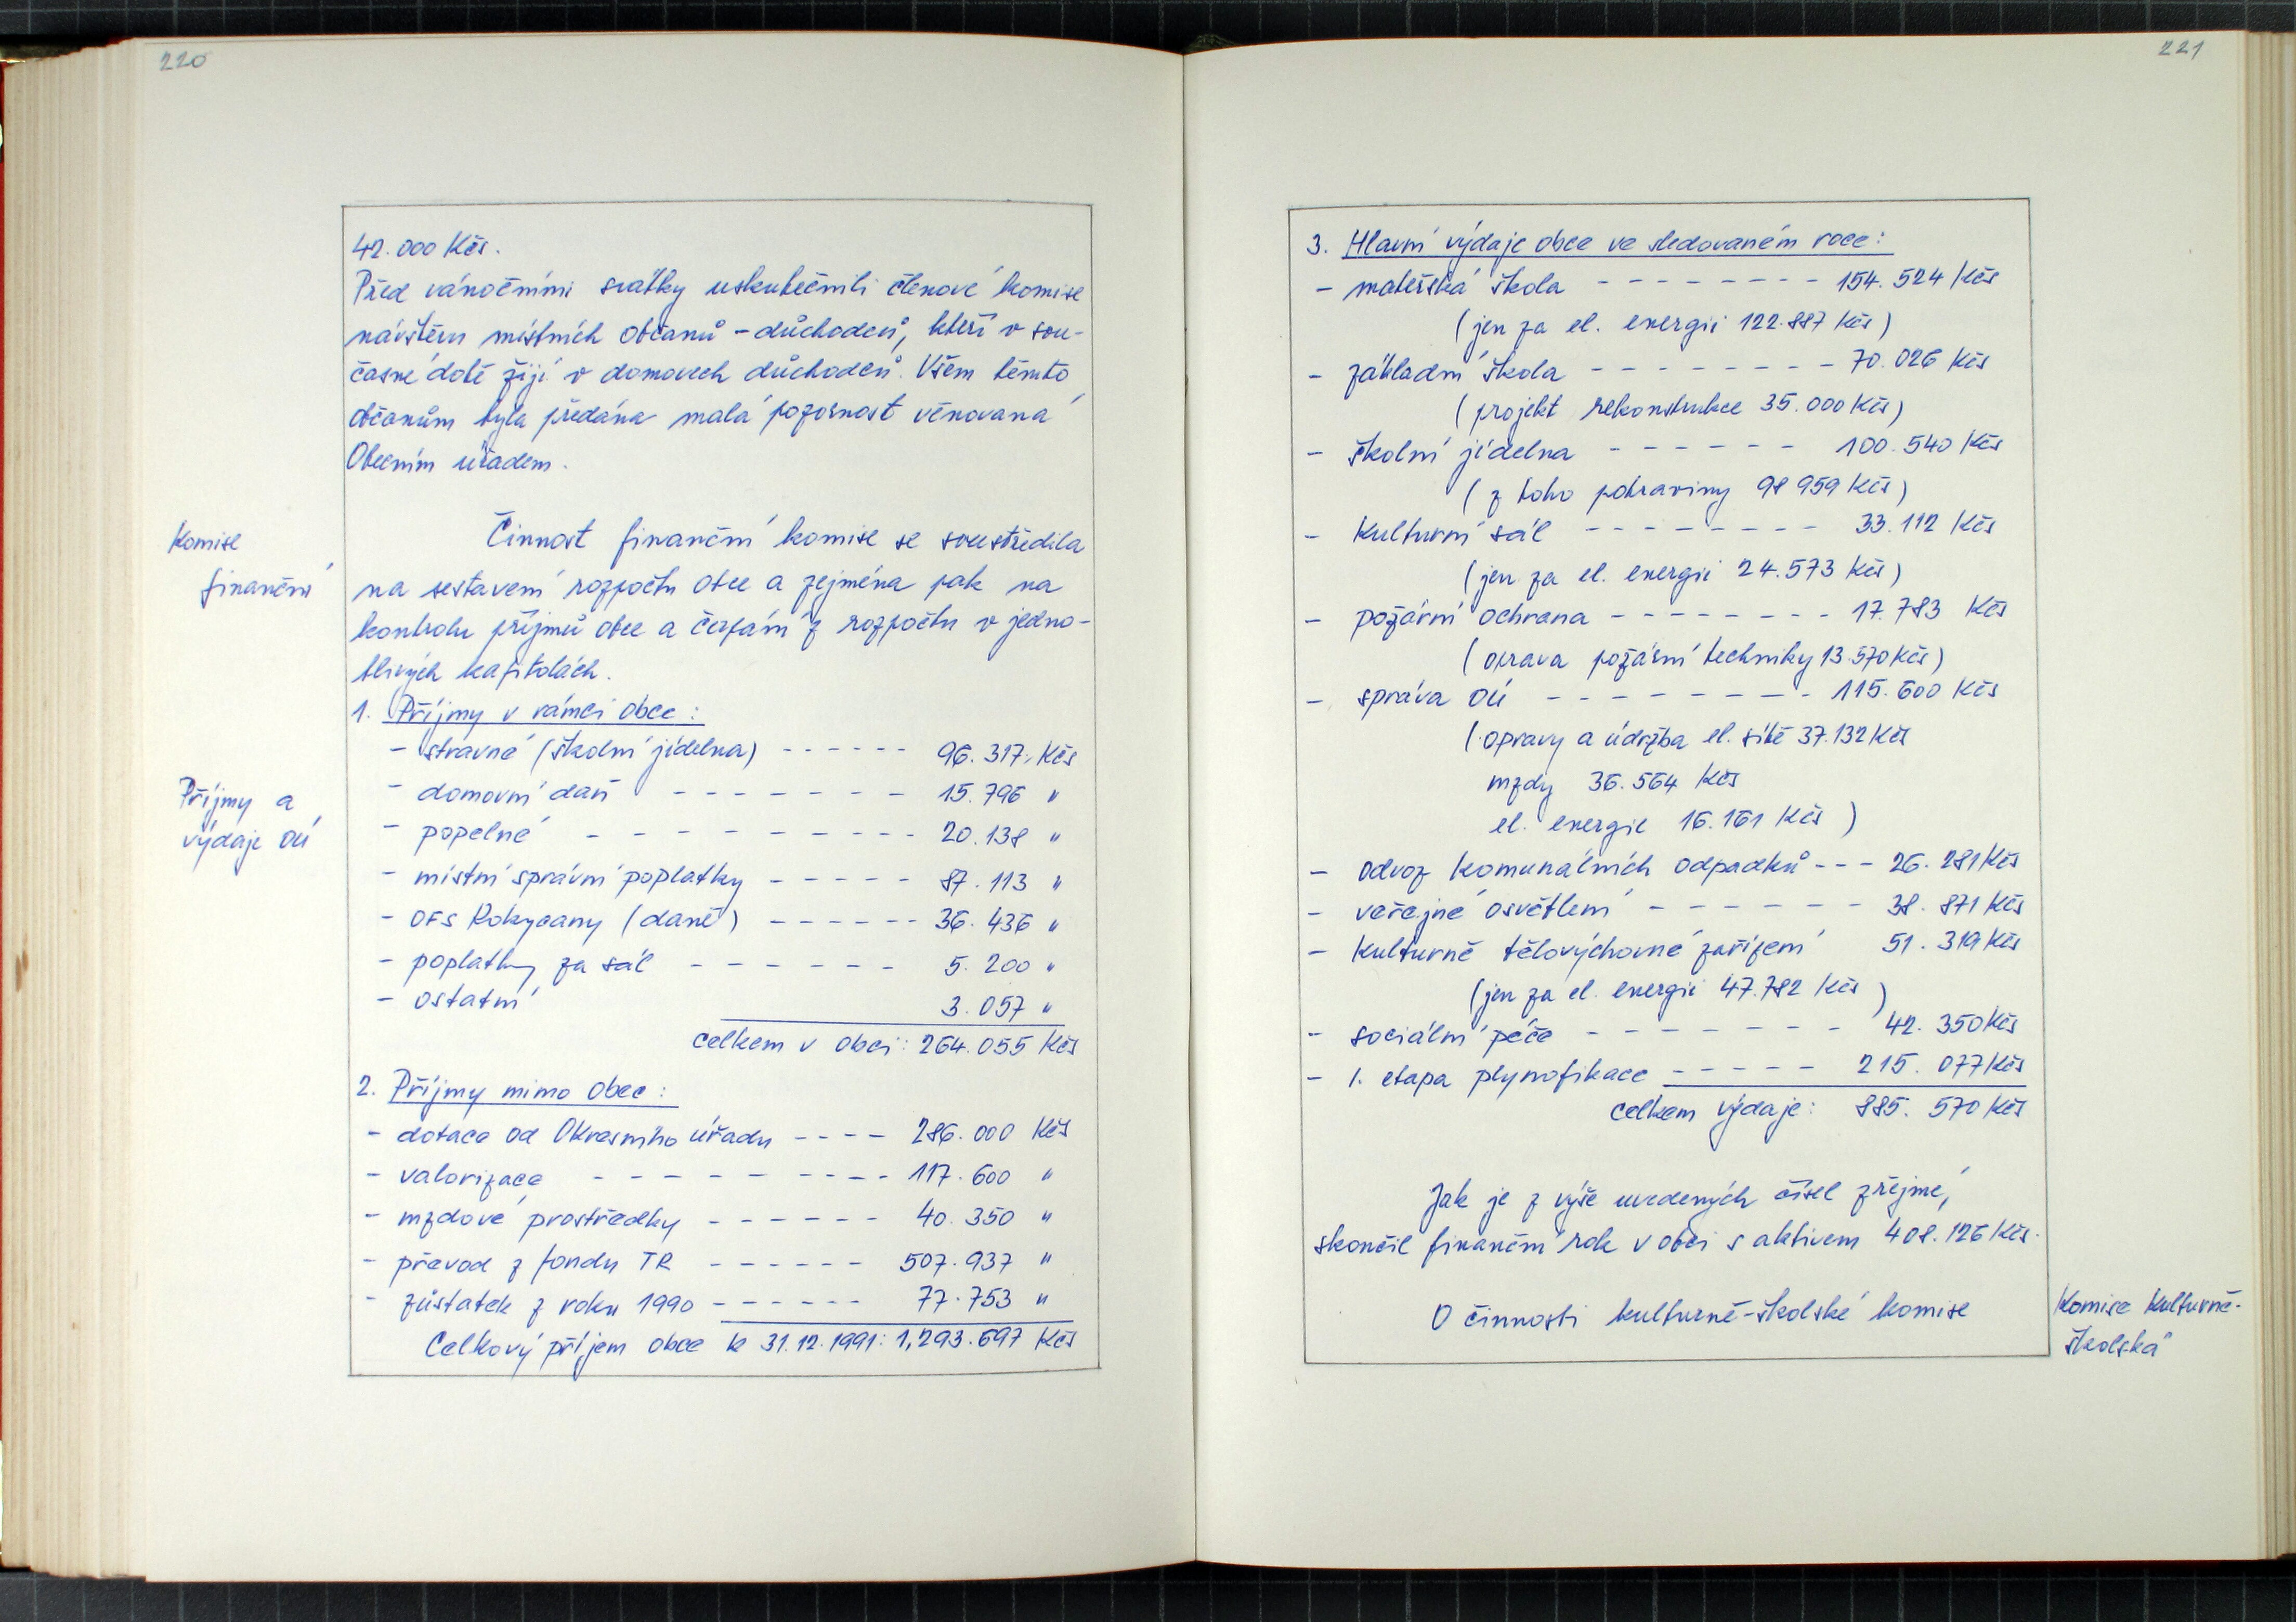 220
42.000 Kčs.
Před vánočními svátky uskutečnili členové komise
návštěvu místních občanů - důchodců, kteří v sou-
časné době žijí v domovech důchodců. Všem těmto
občanům byla předána malá pozornost věnovaná
Obecním úřadem.
Komise
finanční
Činnost finanční komise se soustředila
na sestavení rozpočtu obce a zejména pak na
kontrolu příjmů obce a čerpání z rozpočtu v jedno-
tlivých kapitolách.
1. Příjmy v rámci obce:
Příjmy a
výdaje OÚ
- stravné (školní jídelna) - - - - - - 96.317,- Kčs
- domovní daň - - - - - - - 15.796 "
- popelné - - - - - - - - - - 20.138 "
- místní správní poplatky - - - - - 87.113 "
- OFS Rokycany (daně) - - - - - - 36.436 "
- poplatky za sál - - - - - - 5.200 "
- ostatní 3.057 "
celkem v obci: 264.055 Kčs
2. Příjmy mimo obec:
- dotace od Okresního úřadu - - - - 286.000 Kčs
- valorizace - - - - - - - - - - 117.600 "
- mzdové prostředky - - - - - - 40.350 "
- převod z fondu TR - - - - - - 507.937 "
- zůstatek z roku 1990 - - - - - - 77.753 "
Celkový příjem obce k 31.12.1991: 1,293.697 Kčs
221
3. Hlavní výdaje obce ve sledovaném roce:
- mateřská škola - - - - - - - - 154.524 Kčs
(jen za el. energii 122.887 Kčs)
- základní škola - - - - - - - - 70.026 Kčs
(projekt rekonstrukce 35.000 Kčs)
- školní jídelna - - - - - - 100.540 Kčs
(z toho potraviny 98 959 Kčs)
- kulturní sál - - - - - - - - 33.112 Kčs
(jen za el. energii 24.573 Kčs)
- požární ochrana - - - - - - - - 17.783 Kčs
(oprava požární techniky 13.570 Kčs)
- správa OÚ - - - - - - - - - 115.600 Kčs
(opravy a údržba el. sítě 37.132 Kčs
mzdy 36.564 Kčs
el. energie 16.161 Kčs )
- odvoz komunálních odpadků - - - 26.281 Kčs
- veřejné osvětlení - - - - - - 38.871 Kčs
- kulturně tělovýchovné zařízení 51.319 Kčs
(jen za el. energii 47.782 Kčs )
- sociální péče - - - - - - - - 42.350 Kčs
- 1. etapa plynofikace - - - - - 215.077 Kčs
celkem výdaje: 885.570 Kčs
Jak je z výše uvedených čísel zřejmé,
skončil finanční rok v obci s aktivem 408.126 Kčs.
O činnosti kulturně-školské komise
Komise kulturně-
školská